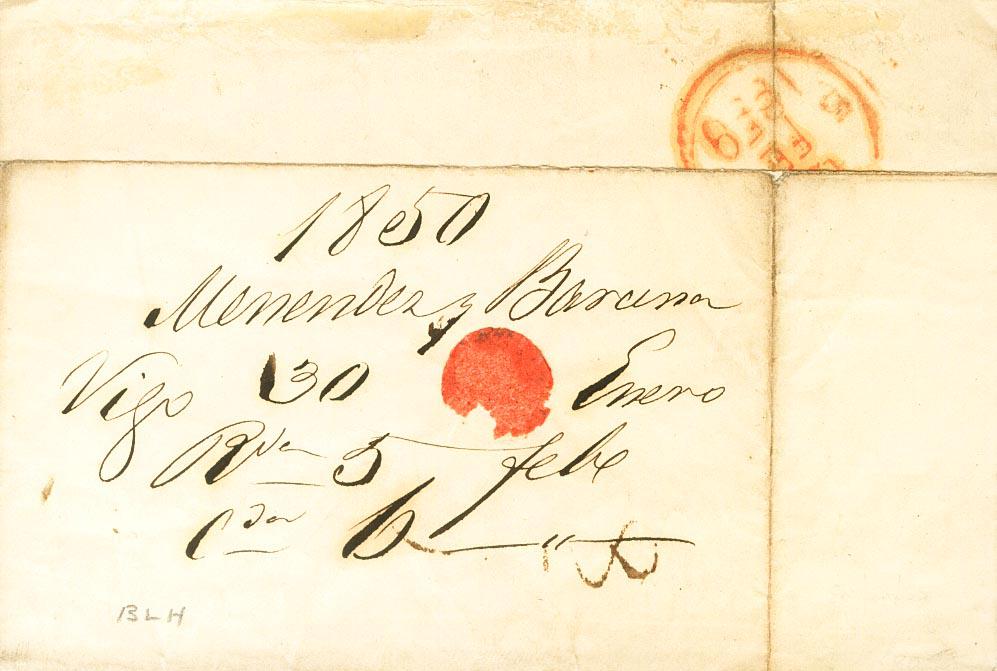 1850
Menendez y Barcena
Vigo 30 Enero
Rda 5 febo
Cda 6 "
BLH